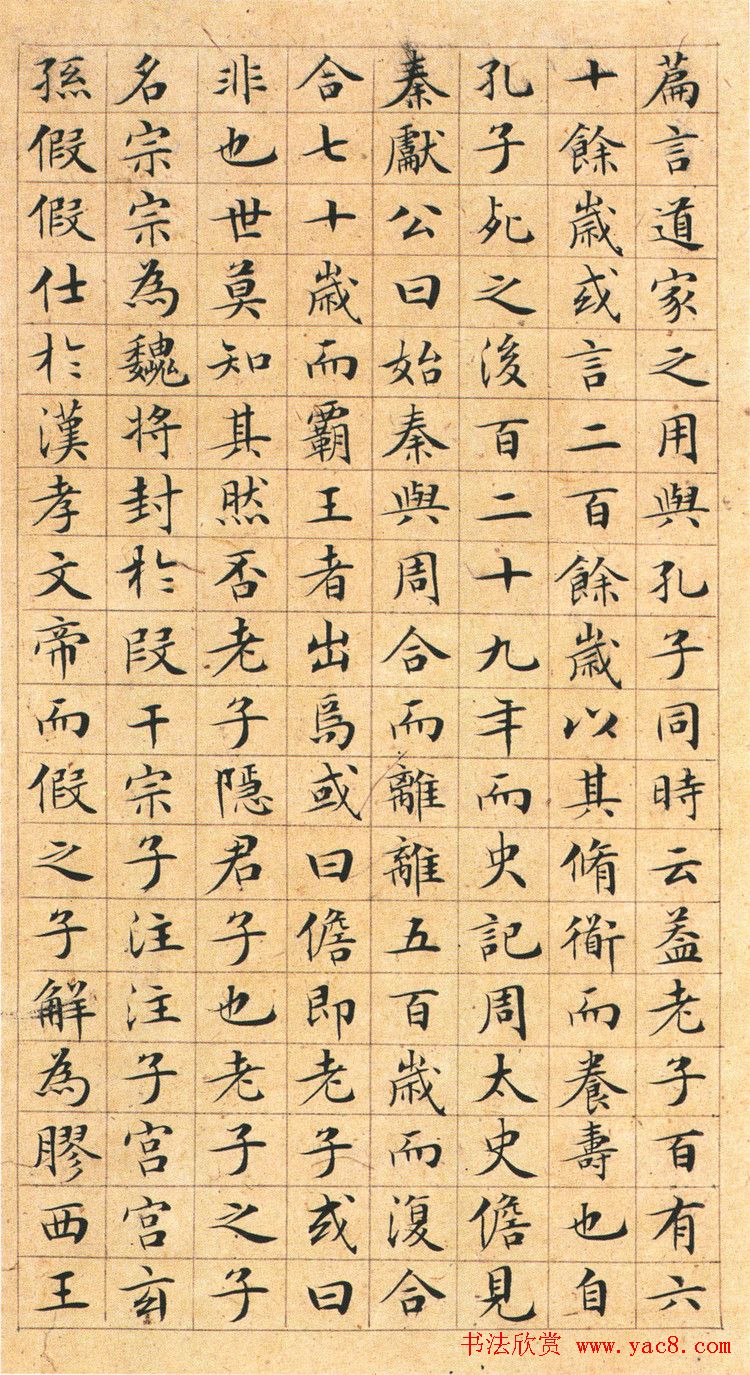 篇言道家之用與孔子同時云蓋老子百有六
十餘歲或言二百餘歲以其脩衟而養壽也自
孔子死之後百二十九年而史記周太史儋見
秦獻公曰始秦與周合而離離五百歲而復合
合七十歲而霸王者出焉或曰儋即老子或曰
非也世莫知其然否老子隱君子也老子之子
名宗宗為魏將封於段干宗子注注子宮宮玄
孫假假仕於漢孝文帝而假之子解為膠西王
书法欣赏 www.yac8.com